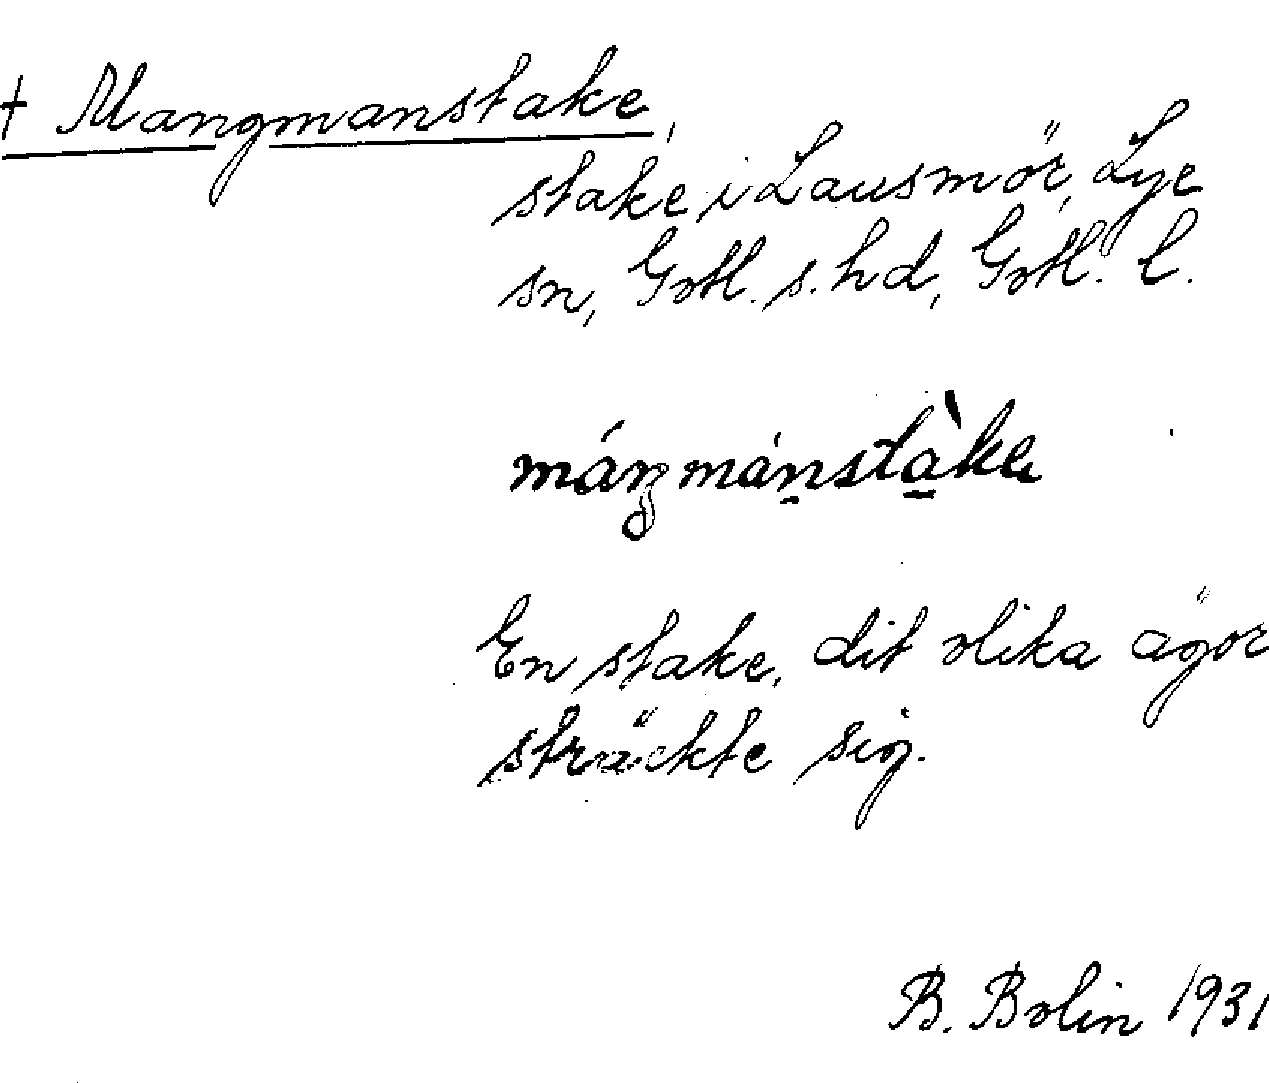 † Mangmanstake,
stake i Lausmör, Lye
sn, Gotl. s. hd, Gotl. l.
máŋmánstàke
En stake, dit olika ägor
sträckte sig.
B. Bolin 1931